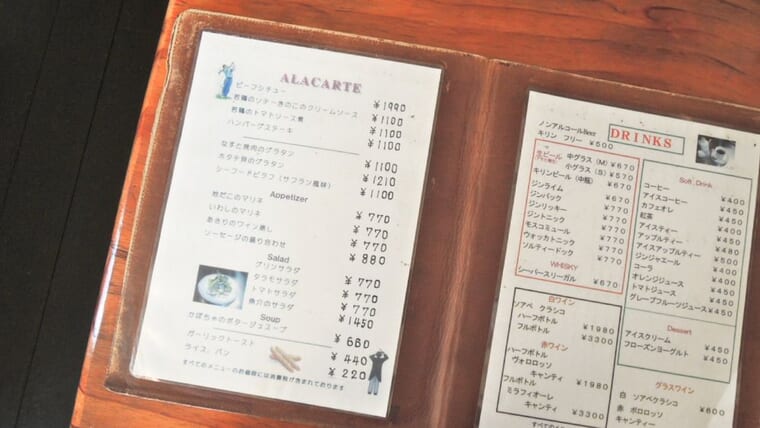 ALACARTE
ビーフシチュー ¥1990
若鶏のソテーきのこのクリームソース ¥1100
若鶏のトマトソース煮 ¥1100
ハンバーグステーキ ¥1100
なすと挽肉のグラタン ¥1100
ホタテ貝のグラタン ¥1210
シーフードピラフ(サフラン風味) ¥1100
Appetizer
地だこのマリネ ¥770
いわしのマリネ ¥770
あさりのワイン蒸し ¥770
ソーセージの盛り合わせ ¥880
Salad
グリンサラダ ¥770
タラモサラダ ¥770
トマトサラダ ¥770
魚介のサラダ ¥1450
Soup
かぼちゃのポタージュスープ ¥660
ガーリックトースト ¥440
ライス、パン ¥220
すべてのメニューのお値段には消費税が含まれております
DRINKS
ノンアルコールBeer
キリン フリー ¥500
生ビール 中グラス(M) ¥670
小グラス(S) ¥570
キリンビール(中瓶) ¥670
ジンライム ¥770
ジンバック ¥770
ジンリッキー ¥770
ジントニック ¥770
モスコミュール ¥770
ウォッカトニック ¥770
ソルティードック ¥770
WHISKY
シーバースリーガル ¥670
白ワイン
ソアベ クラシコ
ハーフボトル ¥1980
フルボトル ¥3300
赤ワイン
ハーフボトル
ヴォロロッソ
キャンティ ¥1980
フルボトル
ミラフィオーレ
キャンティ ¥3300
Soft Drink
コーヒー ¥400
アイスコーヒー ¥450
カフェオレ ¥450
紅茶 ¥400
アイスティー ¥450
アップルティー ¥450
アイスアップルティー ¥480
ジンジャエール ¥450
コーラ ¥450
オレンジジュース ¥450
トマトジュース ¥450
グレープフルーツジュース ¥450
Dessert
アイスクリーム ¥450
フローズンヨーグルト ¥450
グラスワイン
白 ソアベクラシコ ¥600
赤 ボロロッソ
キャンティ